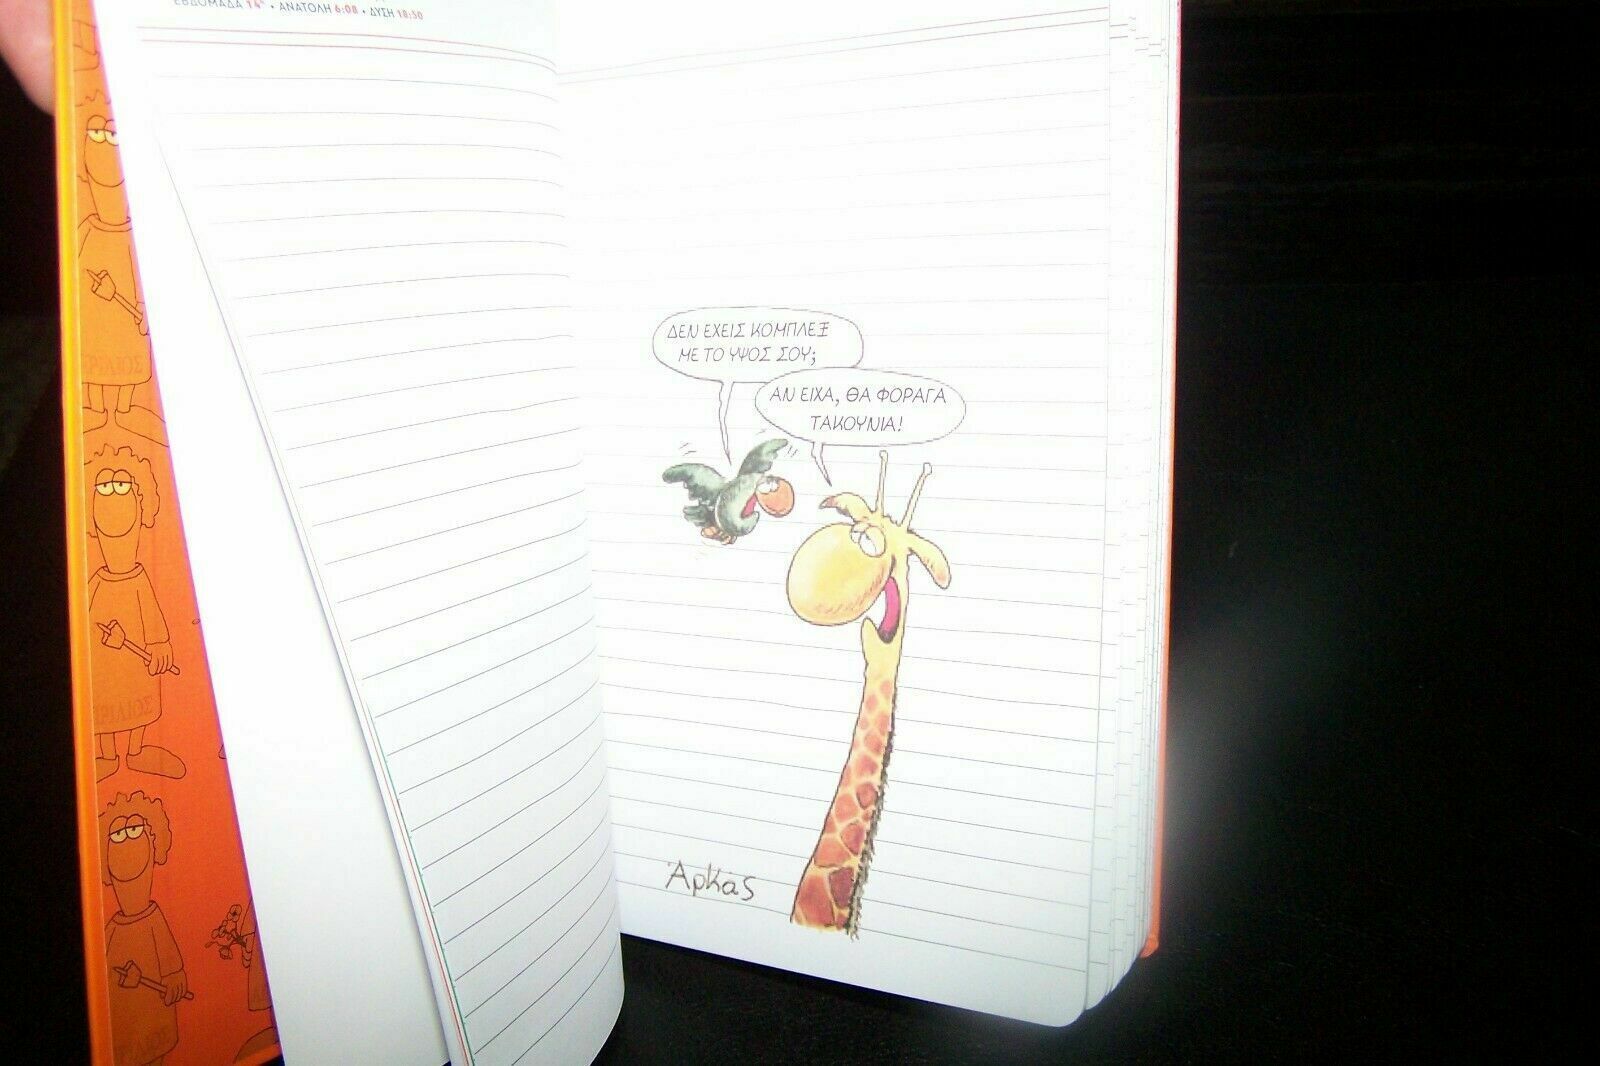 ΕΒΔΟΜΑΔΑ 14η • ΑΝΑΤΟΛΗ 6:08 • ΔΥΣΗ 18:50
ΔΕΝ ΕΧΕΙΣ ΚΟΜΠΛΕΞ
ΜΕ ΤΟ ΥΨΟΣ ΣΟΥ;
ΑΝ ΕΙΧΑ, ΘΑ ΦΟΡΑΓΑ
ΤΑΚΟΥΝΙΑ!
Αρκάς
ΡΙΛΙΟΣ
ΡΙΛΙΟΣ